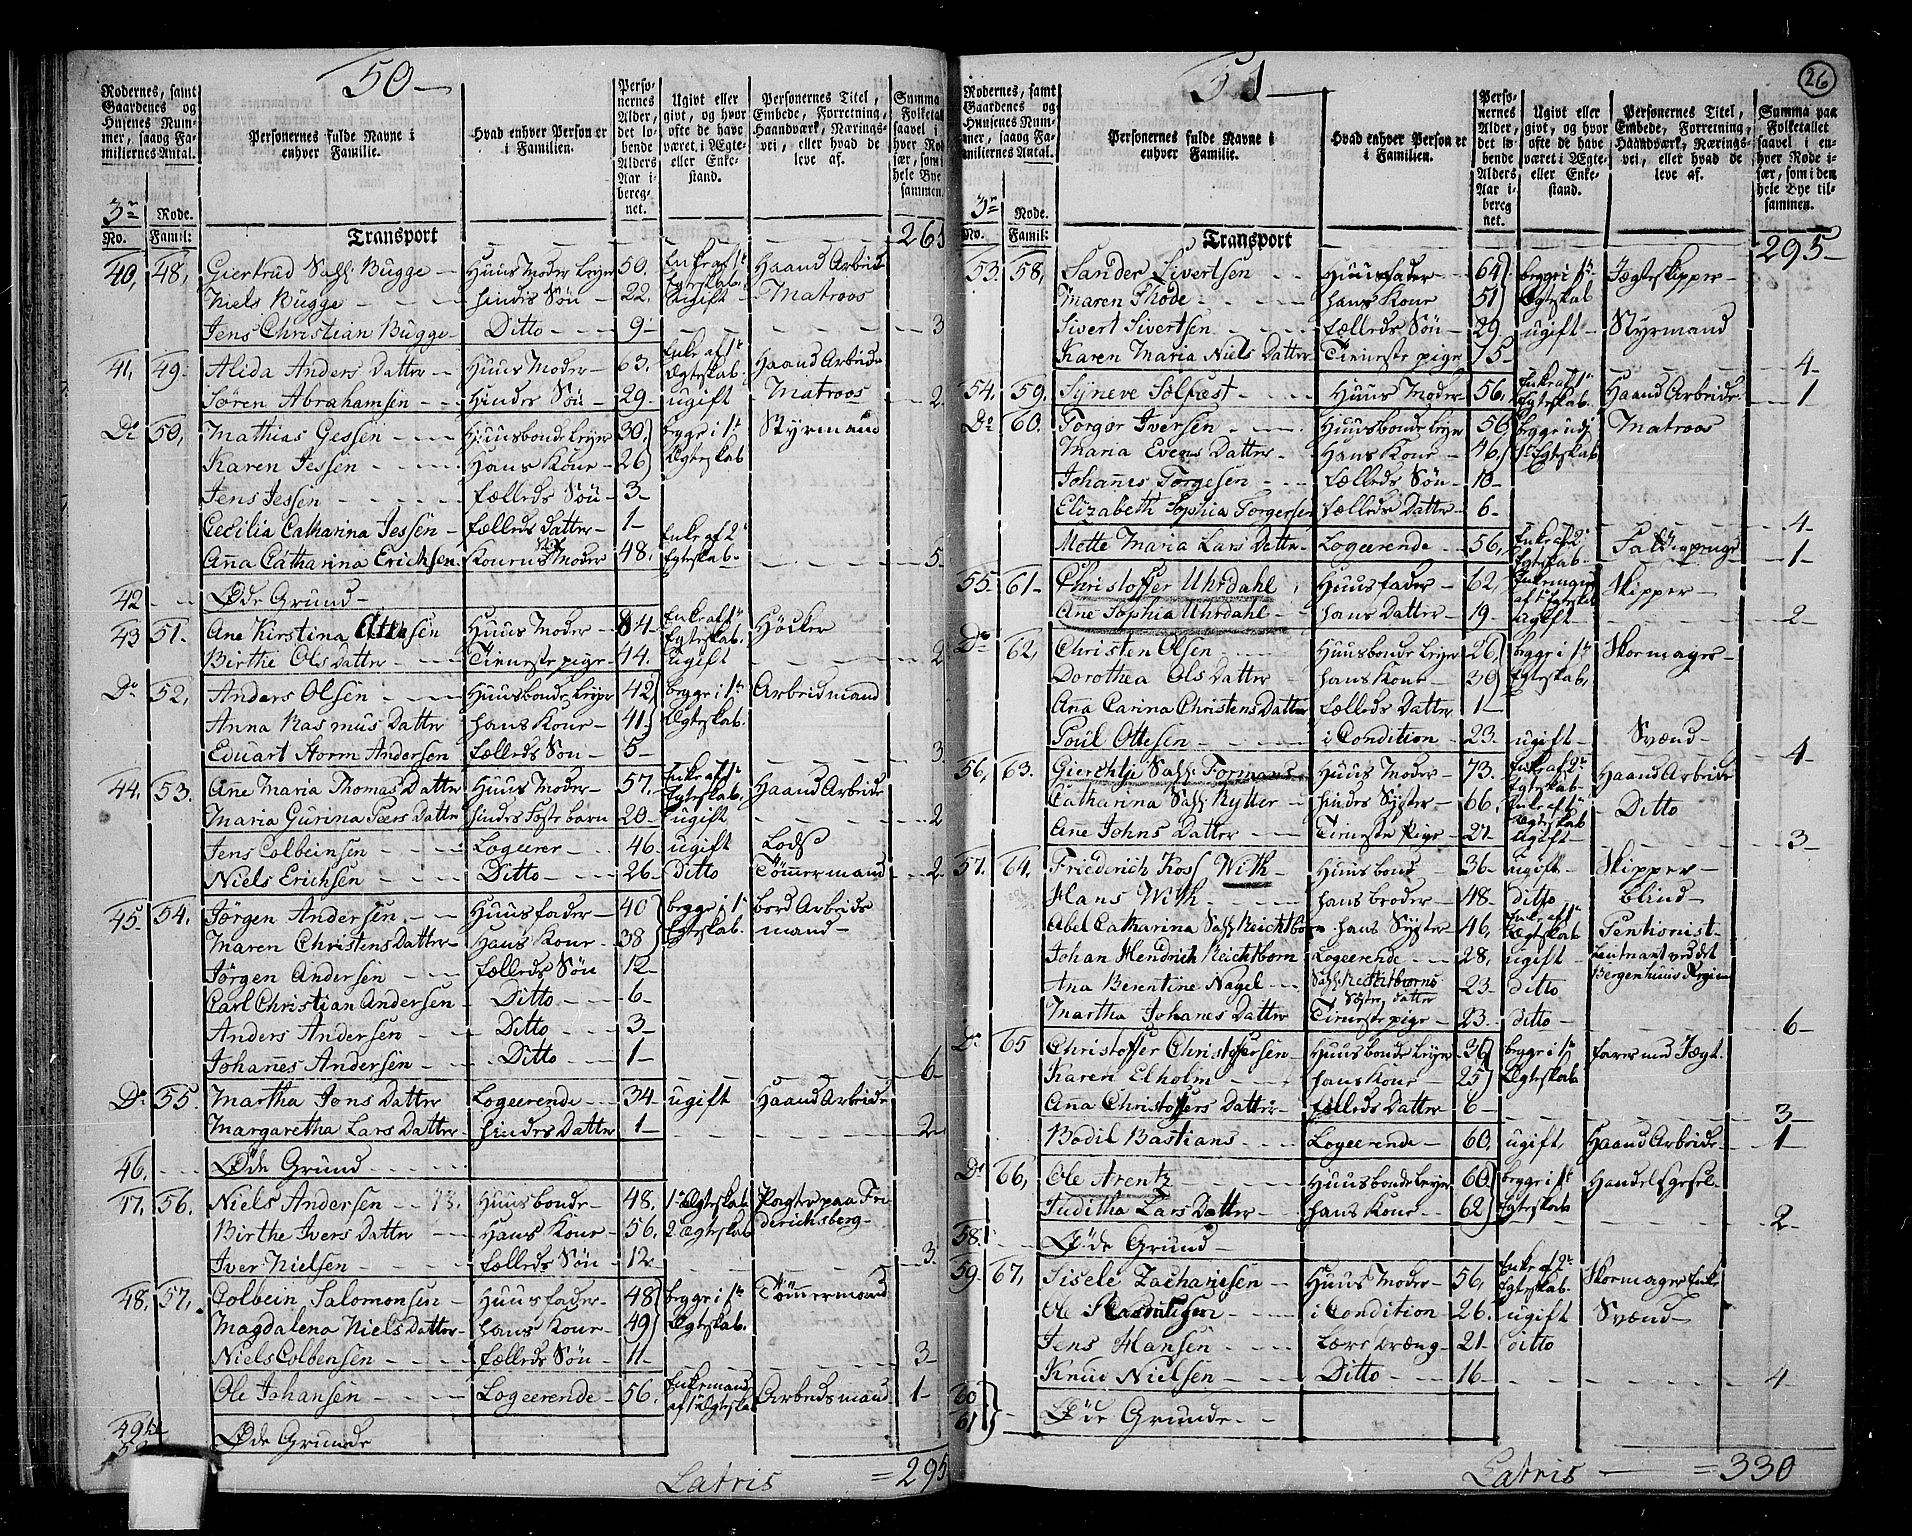 50
Rodernes, samt Gaardenes og Husenes Nummer, saavog Familiernes Antal.
Personernes fulde Navne i enhver Familie.
Hvad enhver Person er i Familien.
Personernes Alder, det lobende Alders Aar iberegnet.
Ugivt eller givt, og hvor ofte de have været i Ægte- eller Enkestand.
Personernes Titel, Embede, Forretning, Haandværk, Næringsvei, eller hvad de leve af.
Summa Folketal saavel i hver Rode sær, som i hele Bye sammen.
3de Rode.
No. Famil:
Transport 265
40, 48, Giertrud Sal: Bugge Huus Moder Leyer 50. Enke af 1te Egteskab. Haand Arbeid
Niels Bugge hindis Søn 22. Ugift Matroos
Jens Christian Bugge Ditto 9 3
41, 49. Alida Anders Datter Huus Moder 63. Enke af 1te Ægteskab. Haand Arbeide
Sören Abrahamsen Hindes Søn 29 ugift Matroos 2
Do 50, Mathias Gessen Huusbonde Leyer 30, begge i 1te Ægteskab Styrmand
Karen Jessen Hans Kone 26
Jens Jessen fælleds Søn 3
Cecilia Catharina Jessen fælleds Datter 1
Anna Catharina Erichsen Konens Moder 48. Enke af 2 Egteskab 5
42 Øde Grund
43 51. Ane Kirstina Huus Moder 84 Enke af 1te Egteskab. Höcker
Birthe Ols Datter Tieneste pige 44. Ugift 2
Do 52, Anders Olsen Huusbonde Leyer 42 begge i 1te Ægteskab. Arbeidmand
Anna Rasmus Datter hans Kone 41
Eduart Storm Andersen fælleds Søn 5 3
44, 53. Ane Maria Thomas Datter Huus Moder 57, Enke af 1te Egteskab. Haand Arbeide
Maria Gurina Peers Datter hindes Foste barn 20 ugift 2
Jens Colbeinsen Logerer 46 ugift Lods
Niels Erichsen Ditto 26 Ditto Tömmermand 2
45 54. Jörgen Andersen Huusfader 40 begge i 1te Egteskab. bord Arbeids mand
Maren Christens Datter Hans Kone 38
Jörgen Andersen fælleds Søn 12
Carl Christian Andersen Ditto 6
Anders Andersen Ditto 3
Johannes Andersen Ditto 1 6
Do 55. Martha Jons Datter Logeerende 34 ugift Haand Arbeide
Margaretha Lars Datter hindes Datter 1 2
46. Øde Grund
47. 56. Niels Andersen Huusbonde 48. 1te Ægteskab Pagter paa Friderichsberg
Birthe Ivers Datter Hans Kone 56. 2 Ægteskab
Iver Nielsen fælleds Søn 12 3
48, 57, Colbein Salomonsen Huusfader 48 begge i 1te Ægteskab. Tömmermand
Magdalena Niels Datter hans Kone 49
Niels Colbensen fælleds Søn 11 3
Ole Johansen Logeerende 56. Enkemand af 1te Ægteska Arbeidsmand 1
49 Øde Grunde
Latris = 295
26
51
Rodernes, samt Gaardenes og Husenes Nummer, saavog Familiernes Antal.
Personernes fulde Navne i enhver Familie.
Hvad enhver Person er i Familien.
Personernes Alder, det lobende Alders Aar iberegnet.
Ugivt eller givt, og hvor ofte de have været i Ægte- eller Enkestand.
Personernes Titel, Embede, Forretning, Haandværk, Næringsvei, eller hvad de leve af.
Summa paa Folketallet saavel i enhver Rode især, som i den hele Bye tilsammen.
3de Rode.
No. Famil:
Transport 295
53. 58, Sander Sivertsen Huusfader 64 begge i 1te Egteskab Jægteskipper
Maren Thode hans Kone 51
Sivert Sivertsen fælleds Søn 29 ugift Styrmand
Karen Maria Niels Datter Tieneste pige 15 4
54, 59, Synneve Solfæst Huus Moder 56, Enke af 1te Egteskab. Haand Arbeide 1
Do 60. Torgor Iversen Huusbonde Leyer 56 begge udi 1te Egteskab Matroos
Maria Evens Datter Hans Kone 46
Johannes Torgesen fælleds Søn 10
Elizabeth Sophia Torgersen fælleds Datter 6 4
Mette Maria Lars Datter Logeerende 56, Enke af 2 Egteskab 1
55 61 Christoffer Uhrdahl, Huusfader 62, Enkemand af 1te Egteskab Skipper
Ane Sophia Uhrdahl hans Datter 19 Ugift 2
Do 62, Christen Olsen Huusbonde Leyer 26, begge i 1te Egteskab, Skormager
Dorothea Ols Datter hans Kone 30
Ana Carina Christens Datter fælleds Datter 1
Poül Ottesen i Condition 23. ugift Svænd 4
56, 63. Sal: Formans Huus Moder 73. Enke af 2 Egteskab Haand Arbeide
Catharina Sal: Rytter hindes Syster 66, Enke af 1te Egteskab Ditto
Ane Johns Datter Tieneste Pige 27 Ugift 3
57. 64, Friederich Koss With Huusbond 36 ugift Skipper
Hans With hans broder 48 ditto blind
Abel Catharina Sal: Reichtborn hans Syster 46, Enke af 1te Ægteskab Pentionist
Johan Hendrich Reichtborn Logeerende 28, ugift Leutnant ved det Bergenhuus Regim
Ana Berentine Nagel Sal: Reichtborns Søster datter 23 ditto
Martha Johanes Datter Tieneste pige 23 ditto 6
Do 65 Christoffer Christoffersen Huusbonde Leyer 30 begge i 1te Ægteskab farer med Jægt.
Karen Elholm hans Kone 25
Anna Christoffers Datter fælleds Datter 6 3
Bodil Bastians Logeerende 60, ugift, Haand Arbeide 1
Do 66, Ole Arentz Huusbonde Leyer 60 begge i 1te Egteskab Handels gesel
Juditha Lars Datter hans Kone 62 2
58. Øde Grund
59 67, Sisele Zachariesen Huus Moder 56, Enke af 2 Egteskab. Skormager Enke
Ole i Condition 26. ugift Svænd
Jens Hansen Lære dræng 21 ditto
Knud Nielsen Ditto 16 4
60
61 Øde Grunde
Latris = 330